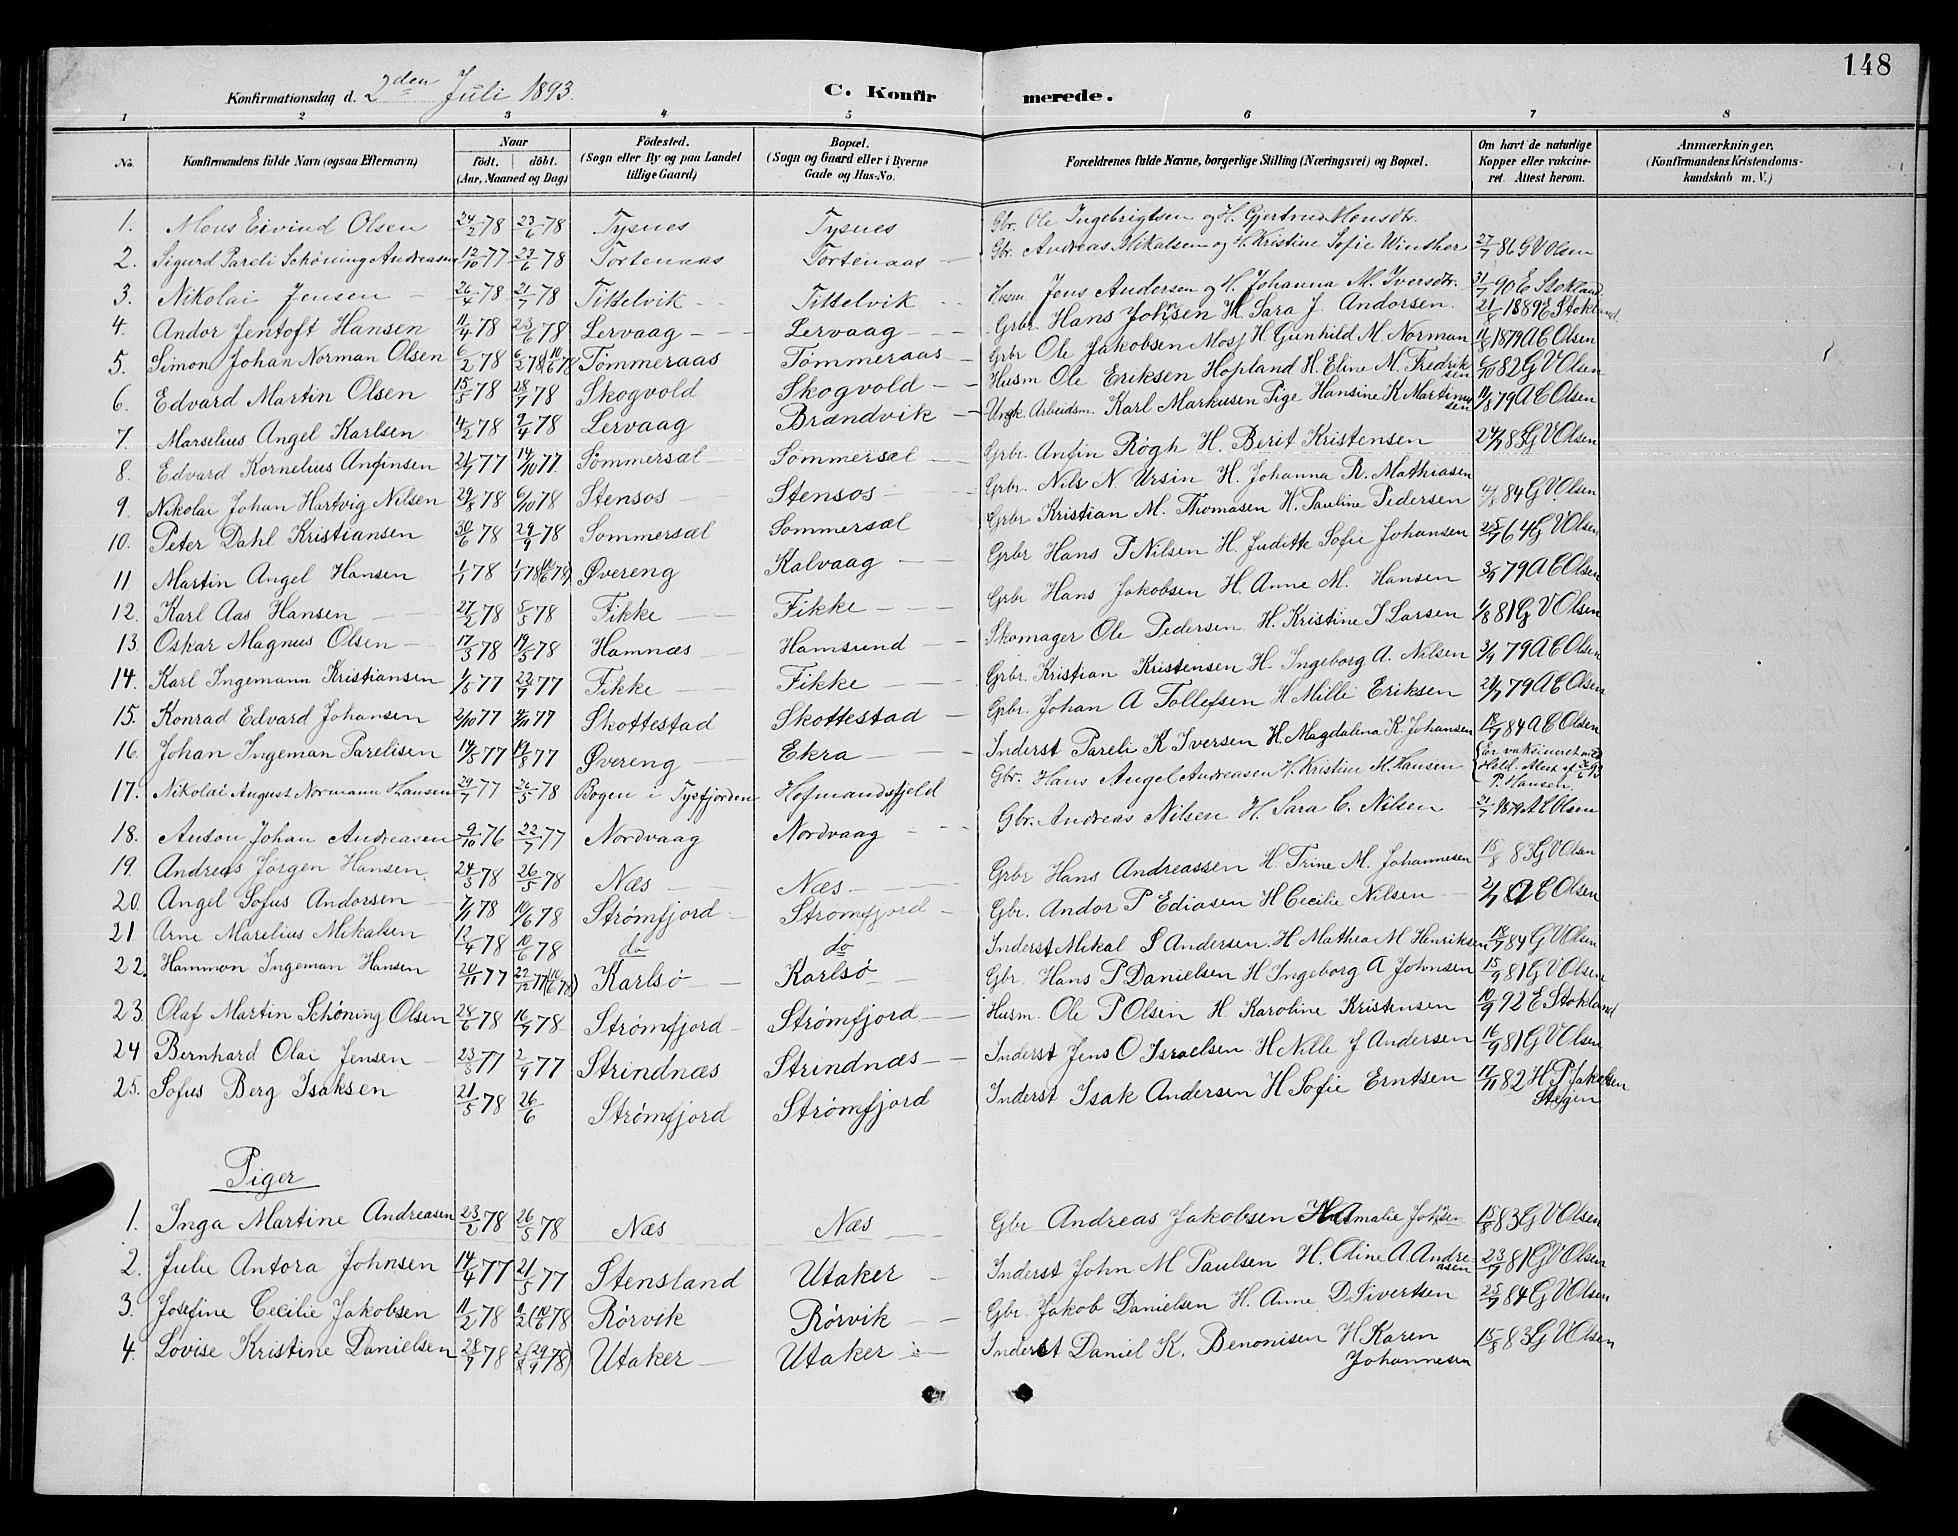 148
Konfirmationsdag d. 2den Juli 1893. C. Konfirmerede.
1 2 3 4 5 6 7 8
No. Konfirmandens fulde Navn (ogsaa Efternavn) Naar födt. döbt. (Aar, Maaned og Dag) Födested. (Sogn eller By og paa Landet tillige Gaard) Bopæl. (Sogn og Gaard eller i Byerne Gade og Hus-No. Forældrenes fulde Navne, borgerlige Stilling (Næringsvei) og Bopæl. Om havt de naturlige Kopper eller vakcineret. Attest herom. Anmærkninger. (Konfirmandens Kristendomskundskab m. V.)
1. Mons Eivind Olsen 24/2 78 23/6 78 Tysnes Tysnes Gbr. Ole Ingebrigtsen og H. Gjertrud Monsdtr.
2. Sigurd Pareli Schøning Andreasen 12/10 77 23/6 78 Tortenaas Tortenaas Gbr. Andreas Nikalsen og H. Kristine Sofie Winther 27/7 86 G V Olsen
3. Nikolai Jensen 26/4 78 21/7 78 Tittelvik Tittelvik Husm. Jens Andersen og H. Johanna M. Iversdtr. 31/7 90 E Stokland
4. Andor Jentoft Hansen 11/4 78 23/6 78 Lervaag Lervaag Grbr. Hans Johnsen H. Sara J. Andorsen 21/8 1889 E Stokland
5. Simon Johan Norman Olsen 6/2 78 6/2 78 (10/6 78 Tömmeraas Tömmeraas Grbr Ole Jakobsen Mosj H Gunhild M. Norman 11/8 1879 A C Olsen
6. Edvard Martin Olsen 15/5 78 28/7 78 Skogvold Skogvold Husm Ole Eriksen Hopland H. Eline M. Fredriksen 6/10 82 G V Olsen
7. Marselius Angel Karlsen 4/2 78 9/4 78 Lervaag Brændvik Ungk. Arbeidsm. Karl Markusen Pige Hansine K Martinusen 11/8 79 A C Olsen
8. Edvard Kornelius Anfinsen 21/7 77 14/10 77. Sommersæl Sommersæl Grbr. Anfin Røgh H. Berit Kristensen 24/7 83 G V Olsen
9. Nikolai Johan Hartvig Nilsen 29/8 78 6/10 78 Stensos Stensos Grbr. Nils N. Ursin H. Johanna B. Mathiasen
10. Peter Dahl Kristiansen 30/6 78 29/9 78 Sommersæl Sommersæl Grbr Kristian M. Thomasen H. Pauline Pedersen 4/8 84 G V Olsen
11 Martin Angel Hansen 1/1 78 1/1 78 (10/6 78) Øvereng Kalvaag Grbr Hans P Nilsen H. Juditte Sofie Johansen 25/7 64 G V Olsen
12. Karl Aas Hansen 27/2 78 5/5 78 Fikke Fikke Grbr Hans Jakobsen H. Anne M. Hansen 3/7 79 A C Olsen
13. Oskar Magnus Olsen 17/3 78 19/5 78 Hamnæs Hamsund Skomager Ole Pedersen H. Kristine J Larsen 1/8 81 G V Olsen
14. Karl Ingemann Kristiansen 1/5 77 22/7 77 Fikke Fikke Grbr. Kristian Kristensen H. Ingeborg A. Nilsen 3/7 79 A C Olsen
15. Konrad Edvard Johansen 2/10 77 4/11 77 Skottestad Skottestad Grbr. Johan A Tollefsen H Mille Eriksen 21/7 79 A C Olsen
16. Johan Ingeman Parelisen 14/5 77 19/8 77 Øvereng Ekra Inderst Pareli K Iversen H. Magdalena K. Johansen 18/7 84 A C Olsen
17. Nikolai August Normann Hansen 29/7 77 26/5 78 Bogen i Tysfjorden Hofmandsfjeld Gbr. Hans Angel Andreasen H. Kristine M. Hansen (Er vakcineret P. Hansen
18. Anton Johan Andreasen 9/10 76 22/7 77 Nordvaag Nordvaag Gbr. Andreas Nilsen H. Sara C. Nilsen 21/7 1879 A C Olsen
19. Andreas Jørgen Hansen 24/3 78 26/5 78 Næs Næs Grbr Hans Andreassen H. Trine M. Johannesen 15/8 83 G V Olsen
20. Angel Sofus Andorsen 7/1 78 10/6 78 Strømfjord Strømfjord Gbr. Andor P Ediasen H Cecilie Nilsen 2/7 A C Olsen
21 Arne Marelius Mikalsen 12/4 78 10/6 78 do do Inderst Mikal S Andersen. H Mathea M Henriksen 18/7 84 G V Olsen
22. Hammon Ingeman Hansen 20/11 77 22/12 77 (10/6 78) Karlsö Karlsö Gbr. Hans P Danielsen H Ingeborg A Johnsen 15/9 81 G V Olsen
23. Olaf Martin Schöning Olsen 28/6 78 16/7 78 Strømfjord Strømfjord Husm. Ole P Olsen H. Karoline Kristensen 10/9 92 E Stokland
24 Bernhard Olai Jensen 23/3 77 2/9 77 Strindnæs Strindnæs Inderst Jens O Israelsen H Nille J Andersen 16/9 81 G V Olsen
25. Sofus Berg Isaksen 21/5 78 26/6 Strømfjord Strømfjord Inderst Isak Andersen H Sofie Erntsen 17/11 82 H P Jakobsen Stegen
Piger
1. Inga Martine Andreasen 23/2 78 26/5 78 Næs Næs Gbr Andreas Jakobsen H Amalie Johnsen 15/8 83 G V Olsen
2. Julie Antora Johnsen 14/4 77 21/5 77 Stensland Utaker Inderst John M Paulsen H. Oline A Andreasen 23/9 81 G V Olsen
3. Josefine Cecilie Jakobsen 11/2 78 11/2 (10/6 78 Rörvik Rörvik Gbr Jakob Danielsen H. Anne D Sivertsen 25/7 84 G V Olsen
4. Lovise Kristine Danielsen 28/7 78 2/8 (29/9 78) Utaker Utaker Inderst Daniel K. Benonisen H Karen Johannesen 15/8 83 G V Olsen